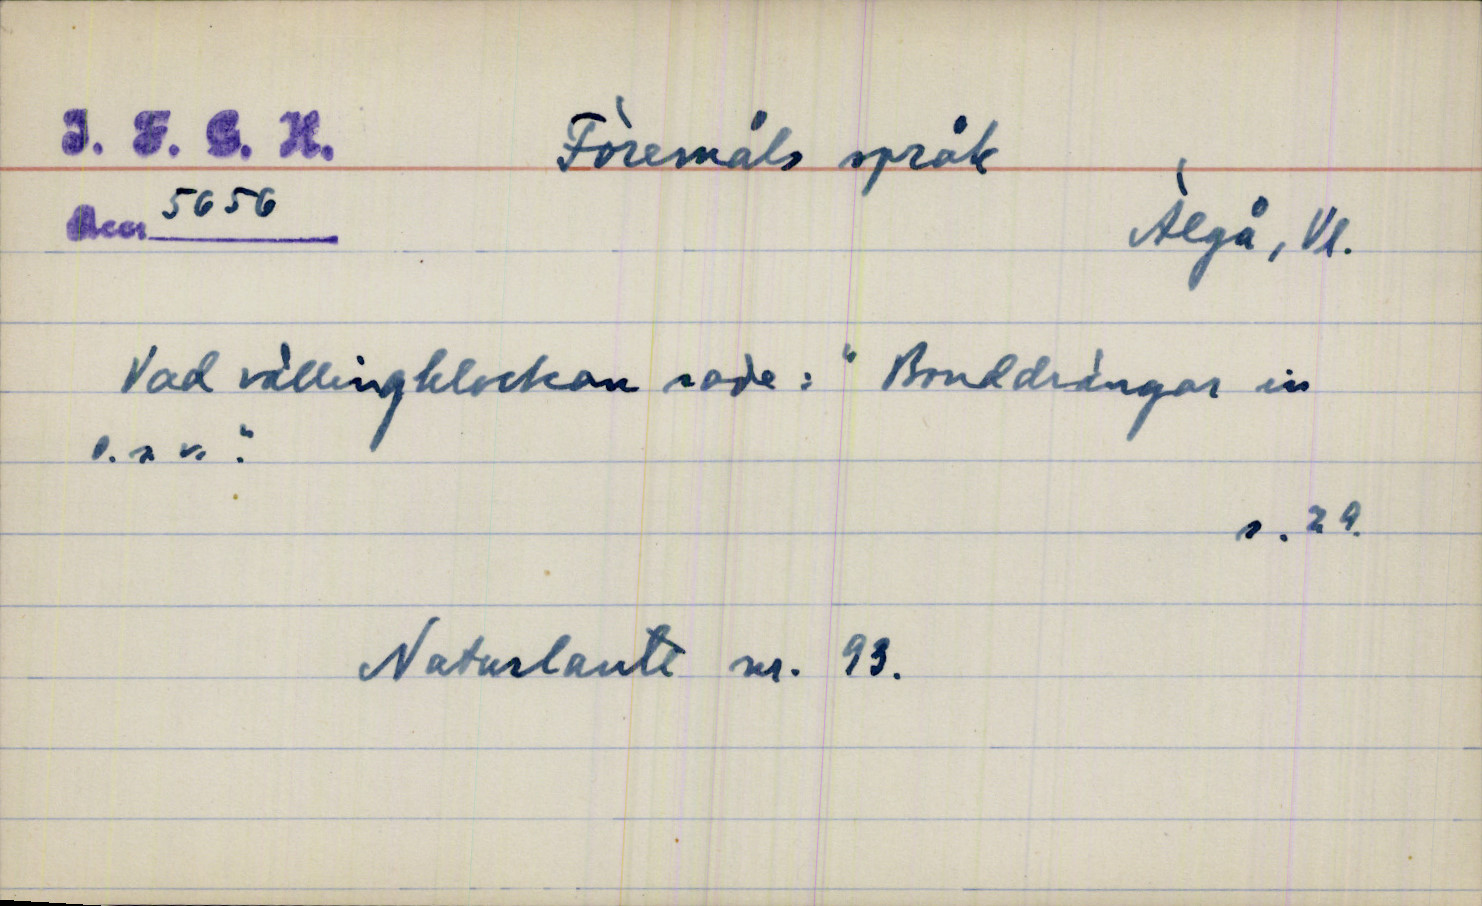 I. F. G. H.
Föremåls språk
Accnr 5656
Älgå, Vl.
Vad vällingklockan sade: "Bonddrängar in
o. s. v."
s. 29.
Naturlaute nr. 93.